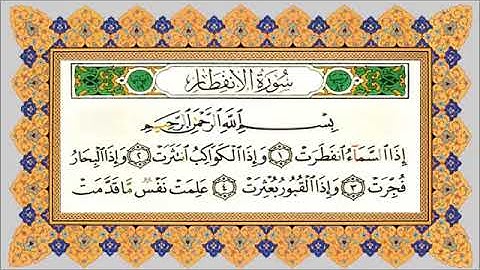 سُورَةُ الِانفِطَارِ
بِسْمِ ٱللَّهِ ٱلرَّحْمَٰنِ ٱلرَّحِيمِ
إِذَا ٱلسَّمَآءُ ٱنفَطَرَتْ ١ وَإِذَا ٱلْكَوَاكِبُ ٱنتَثَرَتْ ٢ وَإِذَا ٱلْبِحَارُ
فُجِّرَتْ ٣ وَإِذَا ٱلْقُبُورُ بُعْثِرَتْ ٤ عَلِمَتْ نَفْسٌ مَّا قَدَّمَتْ